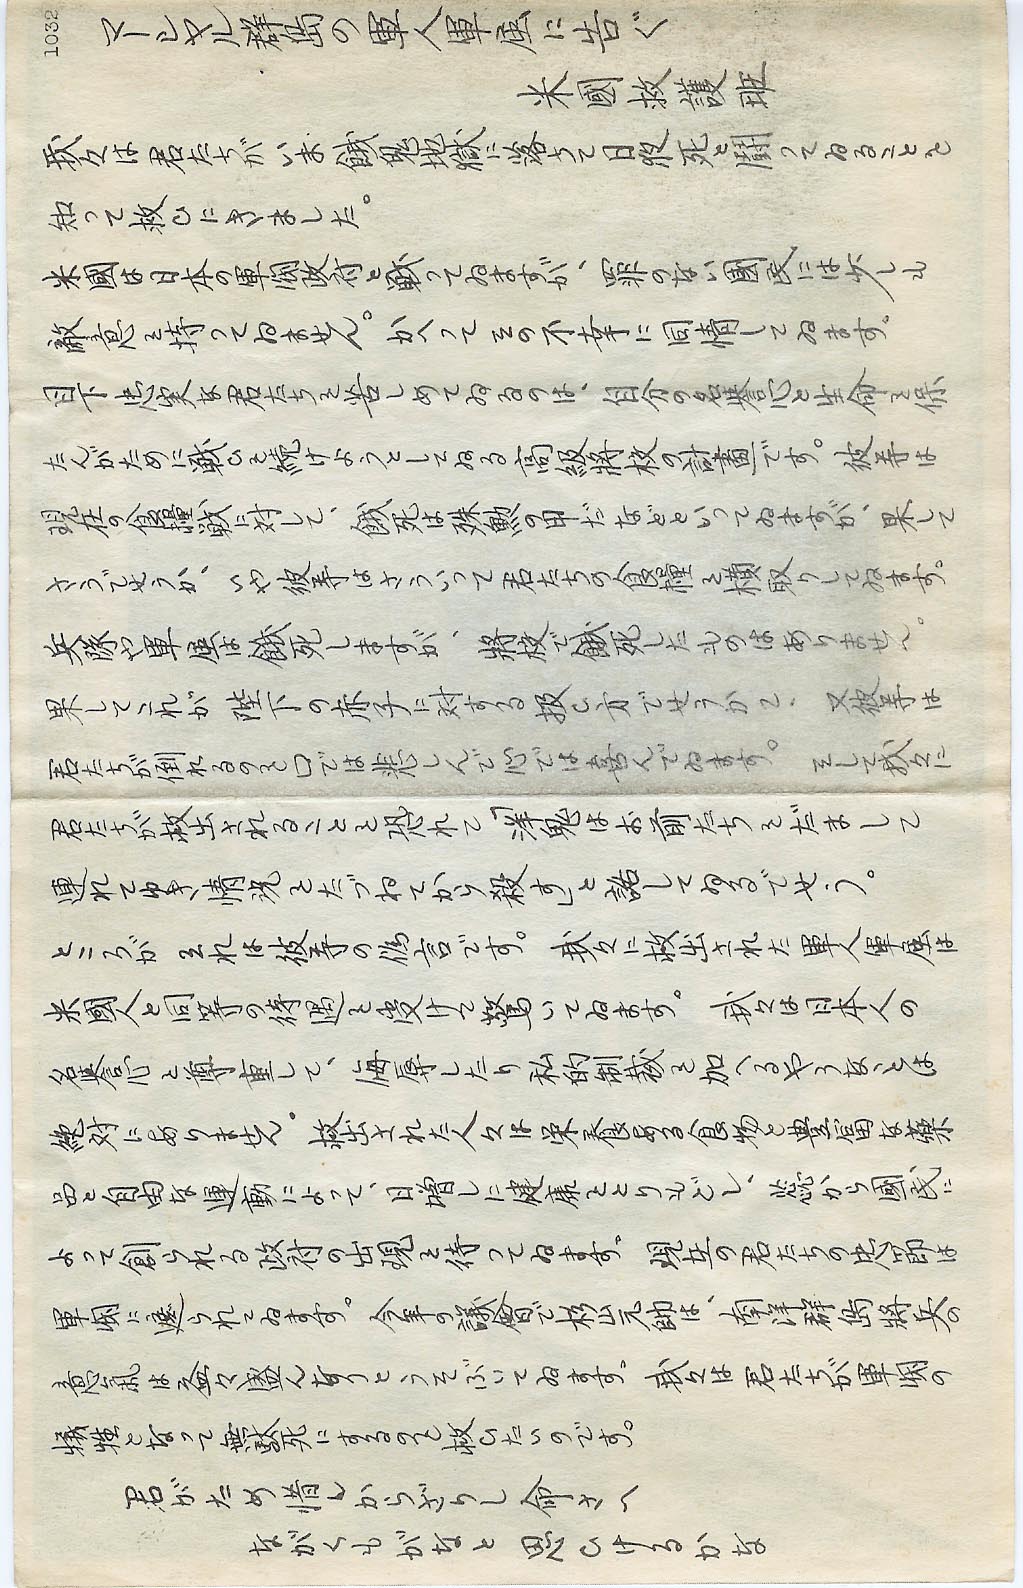 1032
マーシャル群島の軍人軍属に告ぐ
米國救護班
我々は君たちがいま餓鬼地獄に落ちて日夜死と闘ってゐることを
知って救ひにきました。
米國は日本の軍閥政府と戦ってゐますが、罪のない國民には少しも
敵意を持ってゐません。かへってその不幸に同情してゐます。
目下忠実な君たちを苦しめてゐるのは、自分の名誉心と生命を保
たんがために戦ひを続けようとしてゐる高級将校の計畫です。彼等は
現在の食糧戦に対して、餓死は殊勲の甲だなどといってゐますが、果して
さうでせうか、いや彼等はさういって君たちの食糧を横取りしてゐます。
兵隊や軍属は餓死しますが、将校で餓死したものはありません。
果してこれが陛下の赤子に対する扱ひ方でせうか、又彼等は
君たちが倒れるのを口では悲しんで心では喜んでゐます。そして我々に
君たちが救出されることを恐れて「洋鬼はお前たちをだまして
連れてゆき、情況をたづねてから殺す」と話してゐるでせう。
ところがそれは彼等の偽言です。我々に救出された軍人軍属は
米國人と同等の待遇を受けて驚いてゐます。我々は日本人の
名誉心を尊重して、侮辱したり私的制裁を加へるやうなことは
絶対にありません。救出された人々は栄養ある食物と豊富な薬
品と自由な運動によって、日増しに健康をとりもどし、愈から國民に
よって創られる政府の出現を待ってゐます。現在の君たちの忠節は
軍閥に遮られてゐます。今年の議會で杉山元帥は、南洋群島将兵の
意気は益々盛んなりとうそぶいてゐます。我々は君たちが軍閥の
犠牲となって無駄死にするのを救ひたいのです。
君がため惜しからざりし命さへ
ながくもがなと思ひけるかな